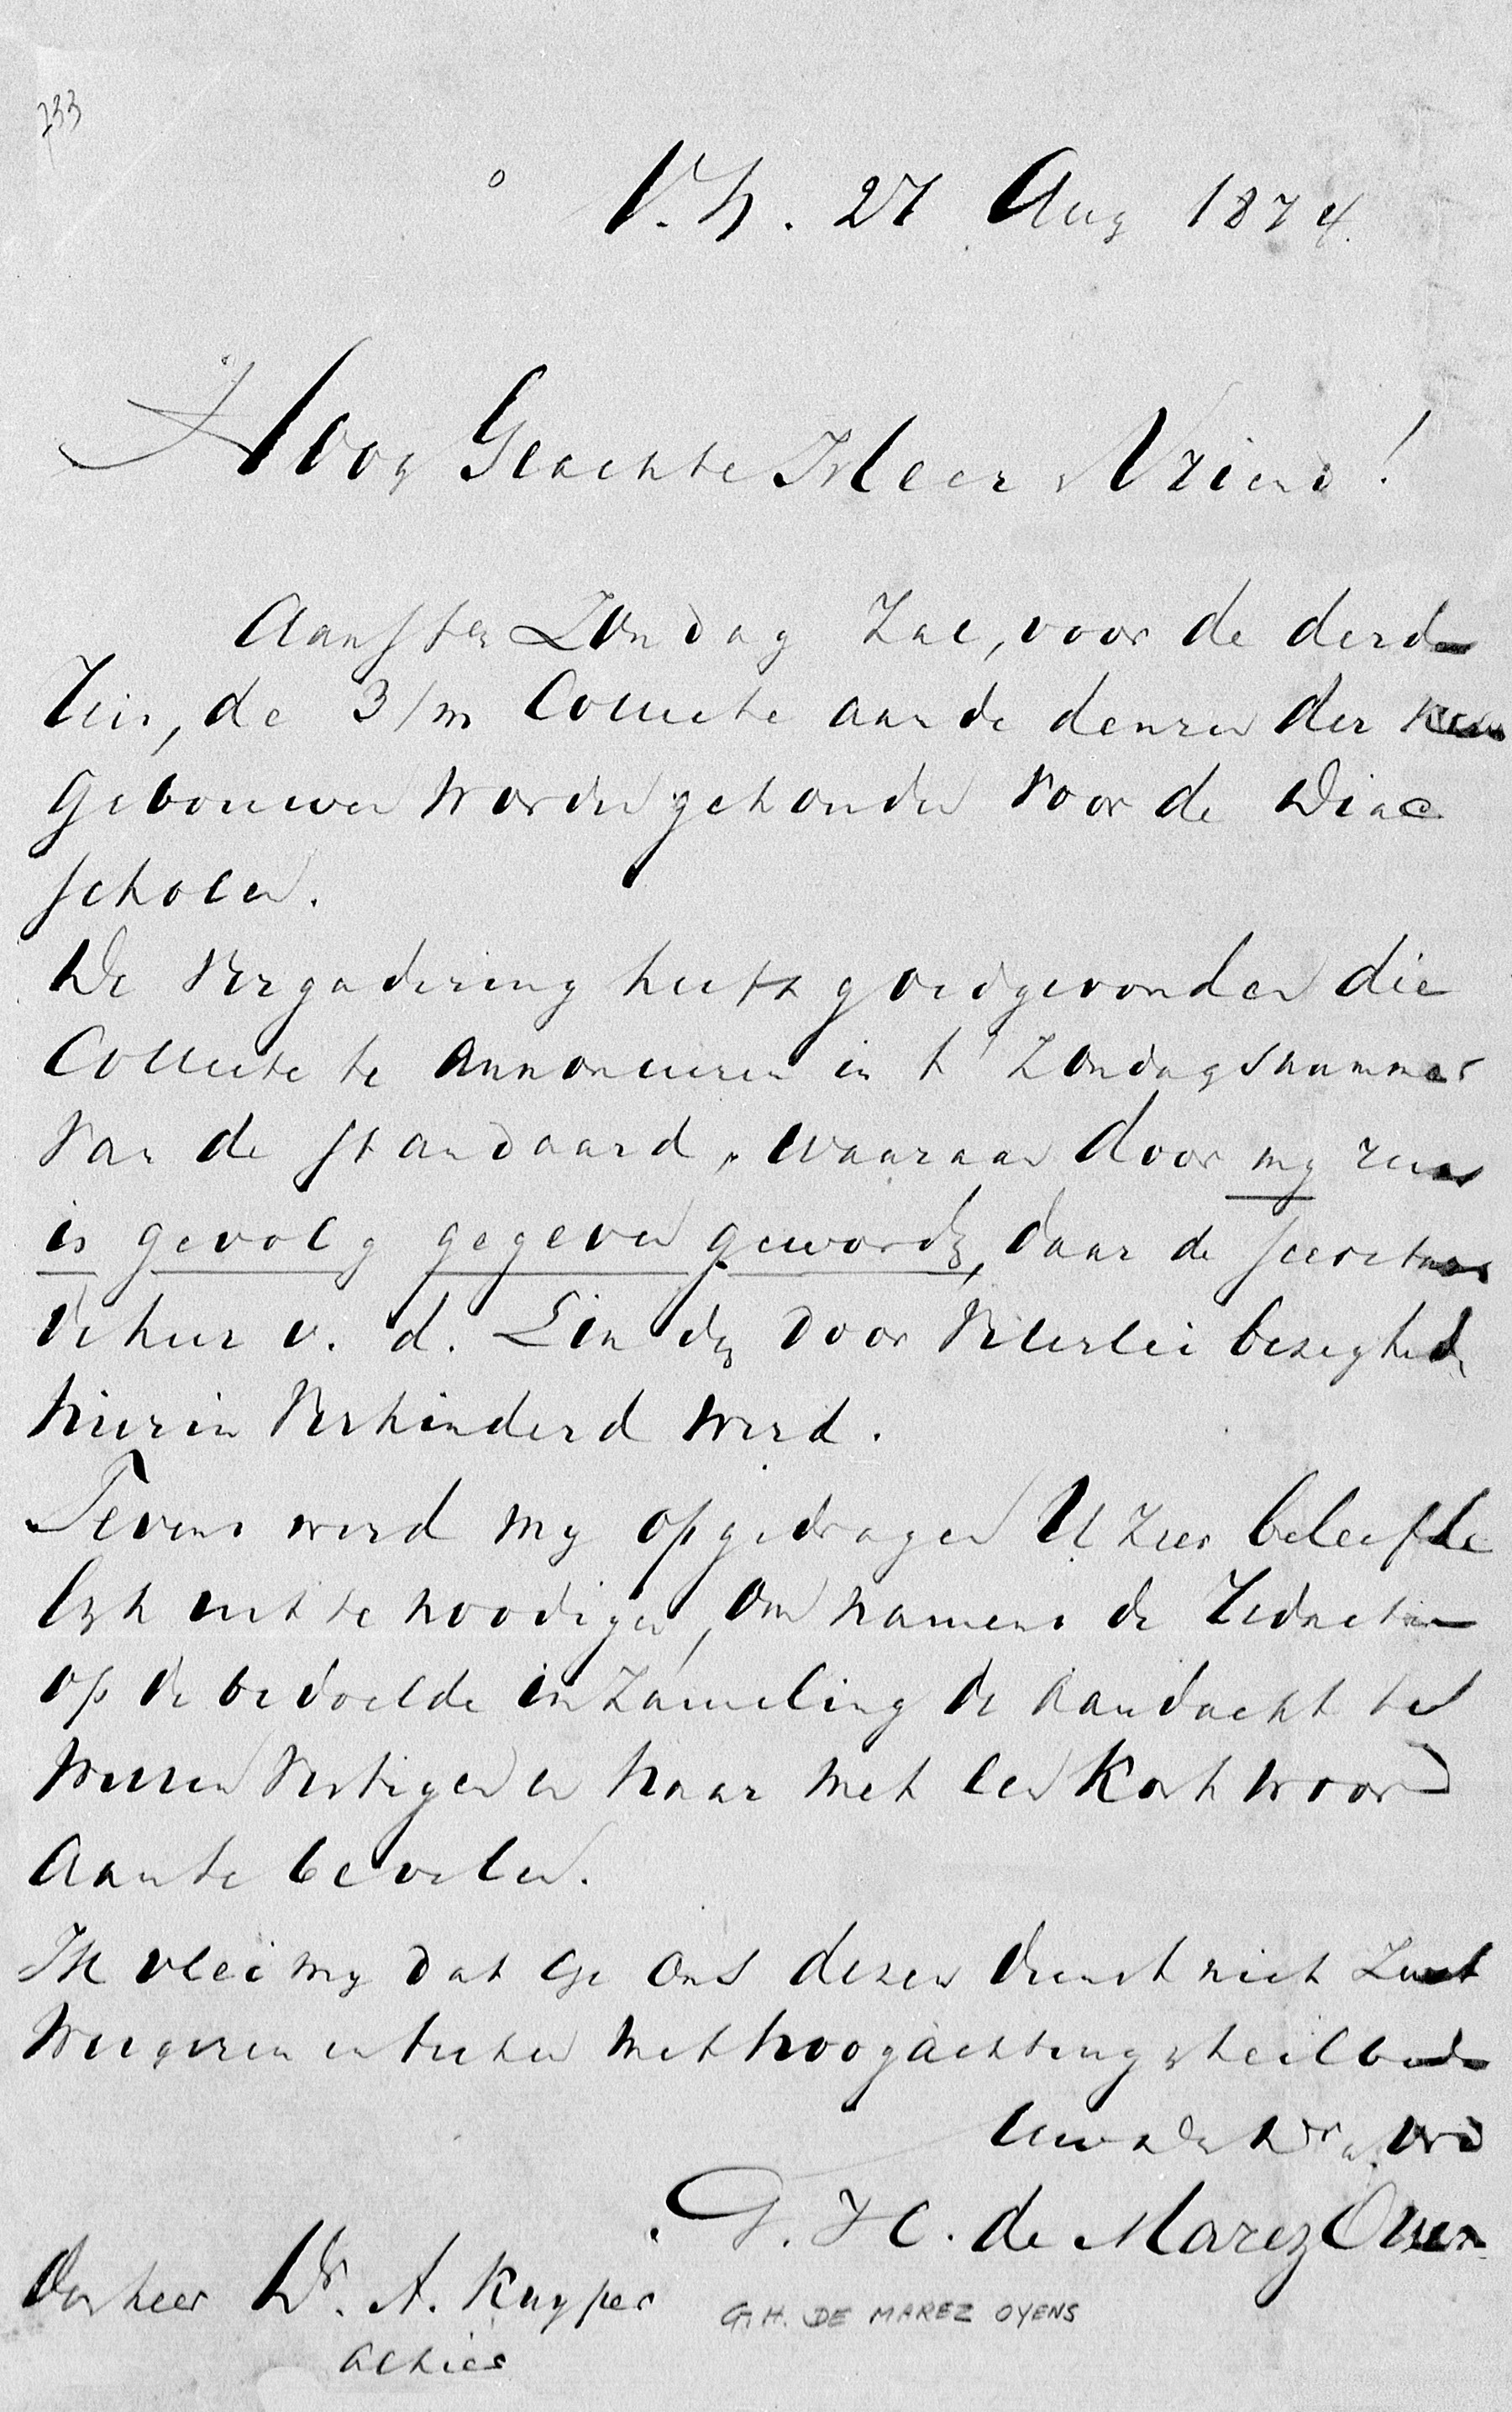 733
V.h. 27 Aug 1874.
Hoog Geachte Heer & Vriend!
Aansten Zondag zal, voor de derde
reis, de 3/m Collecte aan de deuren der Kerk
gebouwen worden gehouden voor de Diac
scholen.
De Vergadering heeft goedgevonden die
Collecte te annonceeren in 't Zondagsnummer
van de Standaard, waaraan door my reeds
is gevolg gegeven geworden, daar de secretaris
de heer v. d. Linden door velerlei bezigheden
hierin verhinderd werd.
Tevens werd my opgedragen U zeer beleefde
lyk uit te noodigen, om namens de Redactie
op de bedoelde inzameling de aandacht te
willen vestigen en haar met een kort woord
aan te bevelen.
Ik vlei my dat ge ons dezen dienst niet zult
weigeren en teeken met hoogachting & heilbede
Uw
G. H. de Marez Oyens
Den heer Dr. A. Kuyper
alhier
G.H. DE MAREZ OYENS